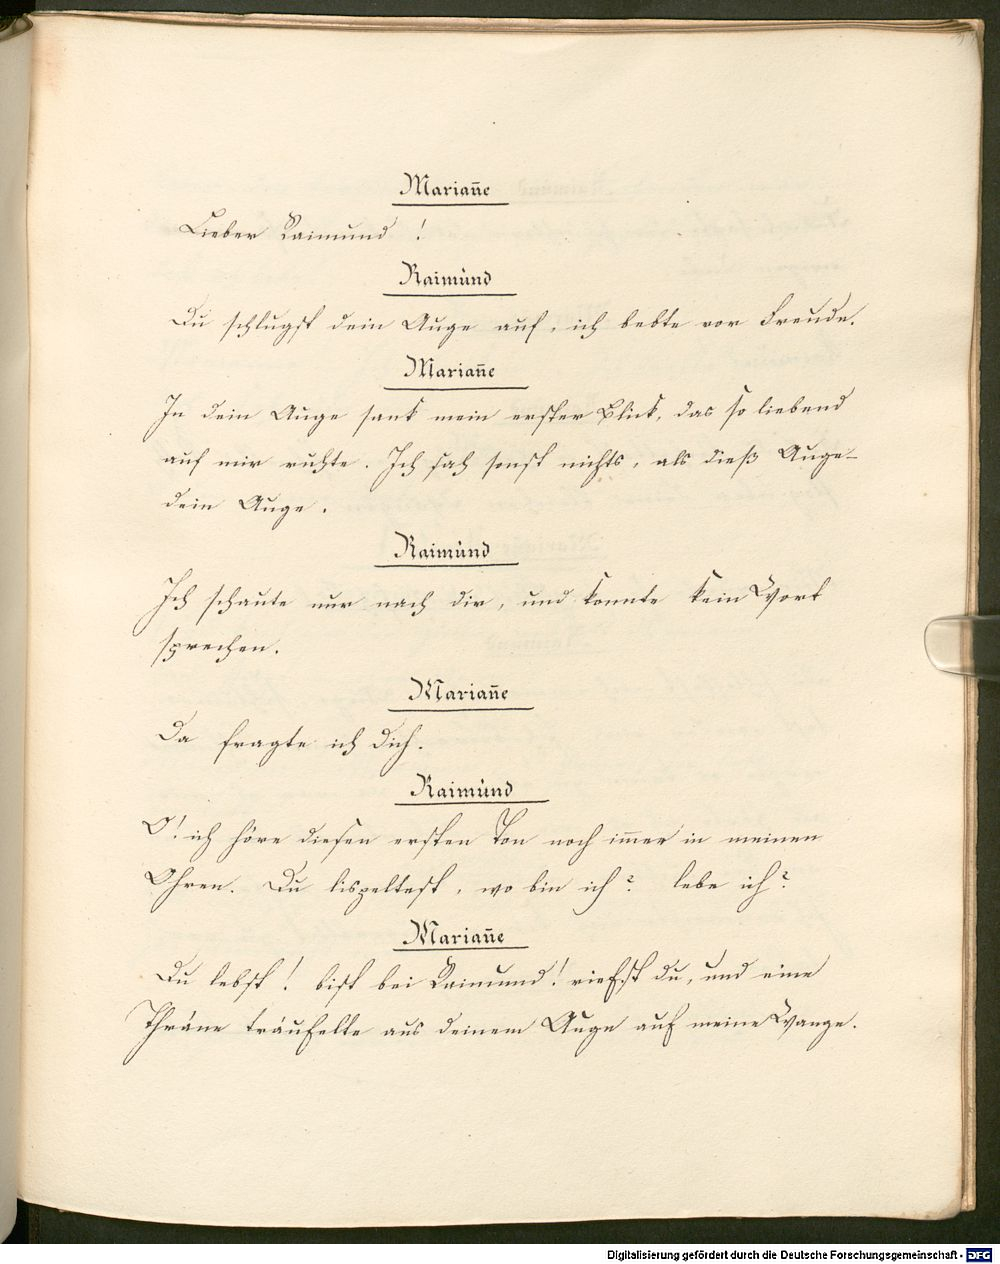 Mariañe
Lieber Raimund !
Raimund
Du schlugst dein Auge auf, ich bebte vor Freude.
Mariañe
In dein Auge sank mein erster Blick, das so liebend
auf mir ruhte. Ich sah sonst nichts, als dieß Auge-
dein Auge.
Raimund
Ich schaute nur nach dir, und konnte kein Wort
sprechen.
Mariañe
Da fragte ich dich.
Raimund
O! ich höre diesen ersten Ton noch im̃er in meinen
Ohren. Du lispeltest, wo bin ich? lebe ich?
Mariañe
Du lebst! bist bei Raimund! riefst du, und eine
Thräne träufelte aus deinem Auge auf meine Wange.
Digitalisierung gefördert durch die Deutsche Forschungsgemeinschaft - DFG